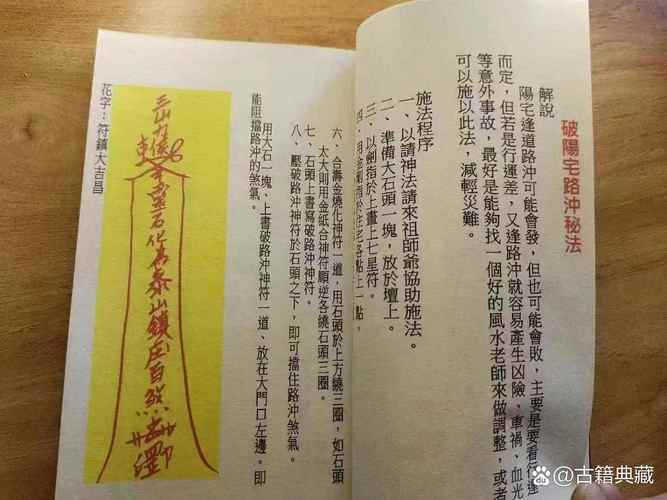 破陽宅路沖秘法
解說
陽宅逢道路沖可能會發，但也可能會敗，主要是要看行運
而定，但若是行運差，又逢路沖就容易產生凶險、車禍、血光
等意外事故，最好是能夠找一個好的風水老師來做調整，或者
可以施以此法，減輕災難。
施法程序
一、以請神法請來祖師爺協助施法。
二、準備大石頭一塊，放於壇上。
三、以劍指於上畫上七星符。
四、用金剪指於住宅各點上一點。
六、合壽金燒化神符一道，用石頭於上方繞三圈，如石頭
太大則用金紙合神符順逆各繞石頭三圈。
七、石頭上書寫破路沖神符。
八、壓破路沖神符於石頭之下，即可擋住路沖煞氣。
用大石一塊，上書破路沖神符一道、放在大門口左邊。即
能阻擋路沖的煞氣。
石化為泰山鎮
花字：符鎮大吉昌
古籍典藏